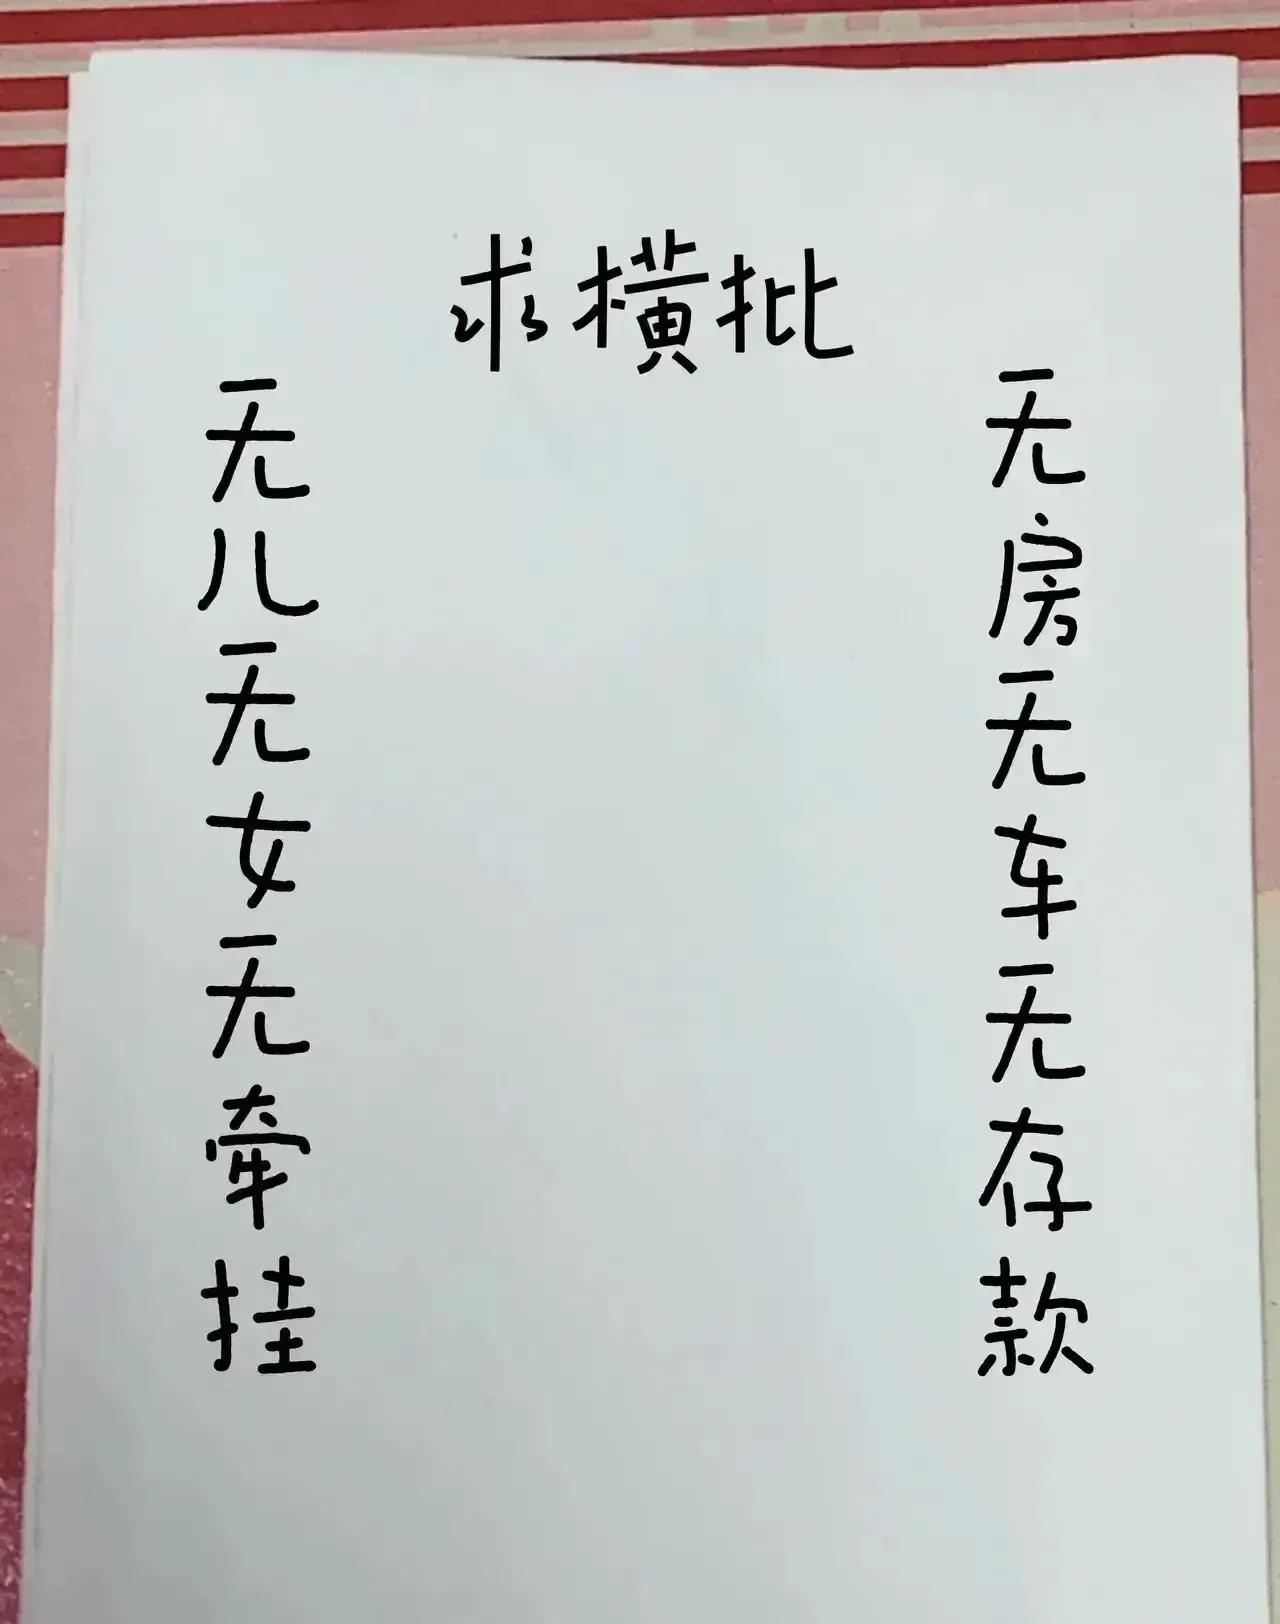 求横批
无房无车无存款
无儿无女无牵挂